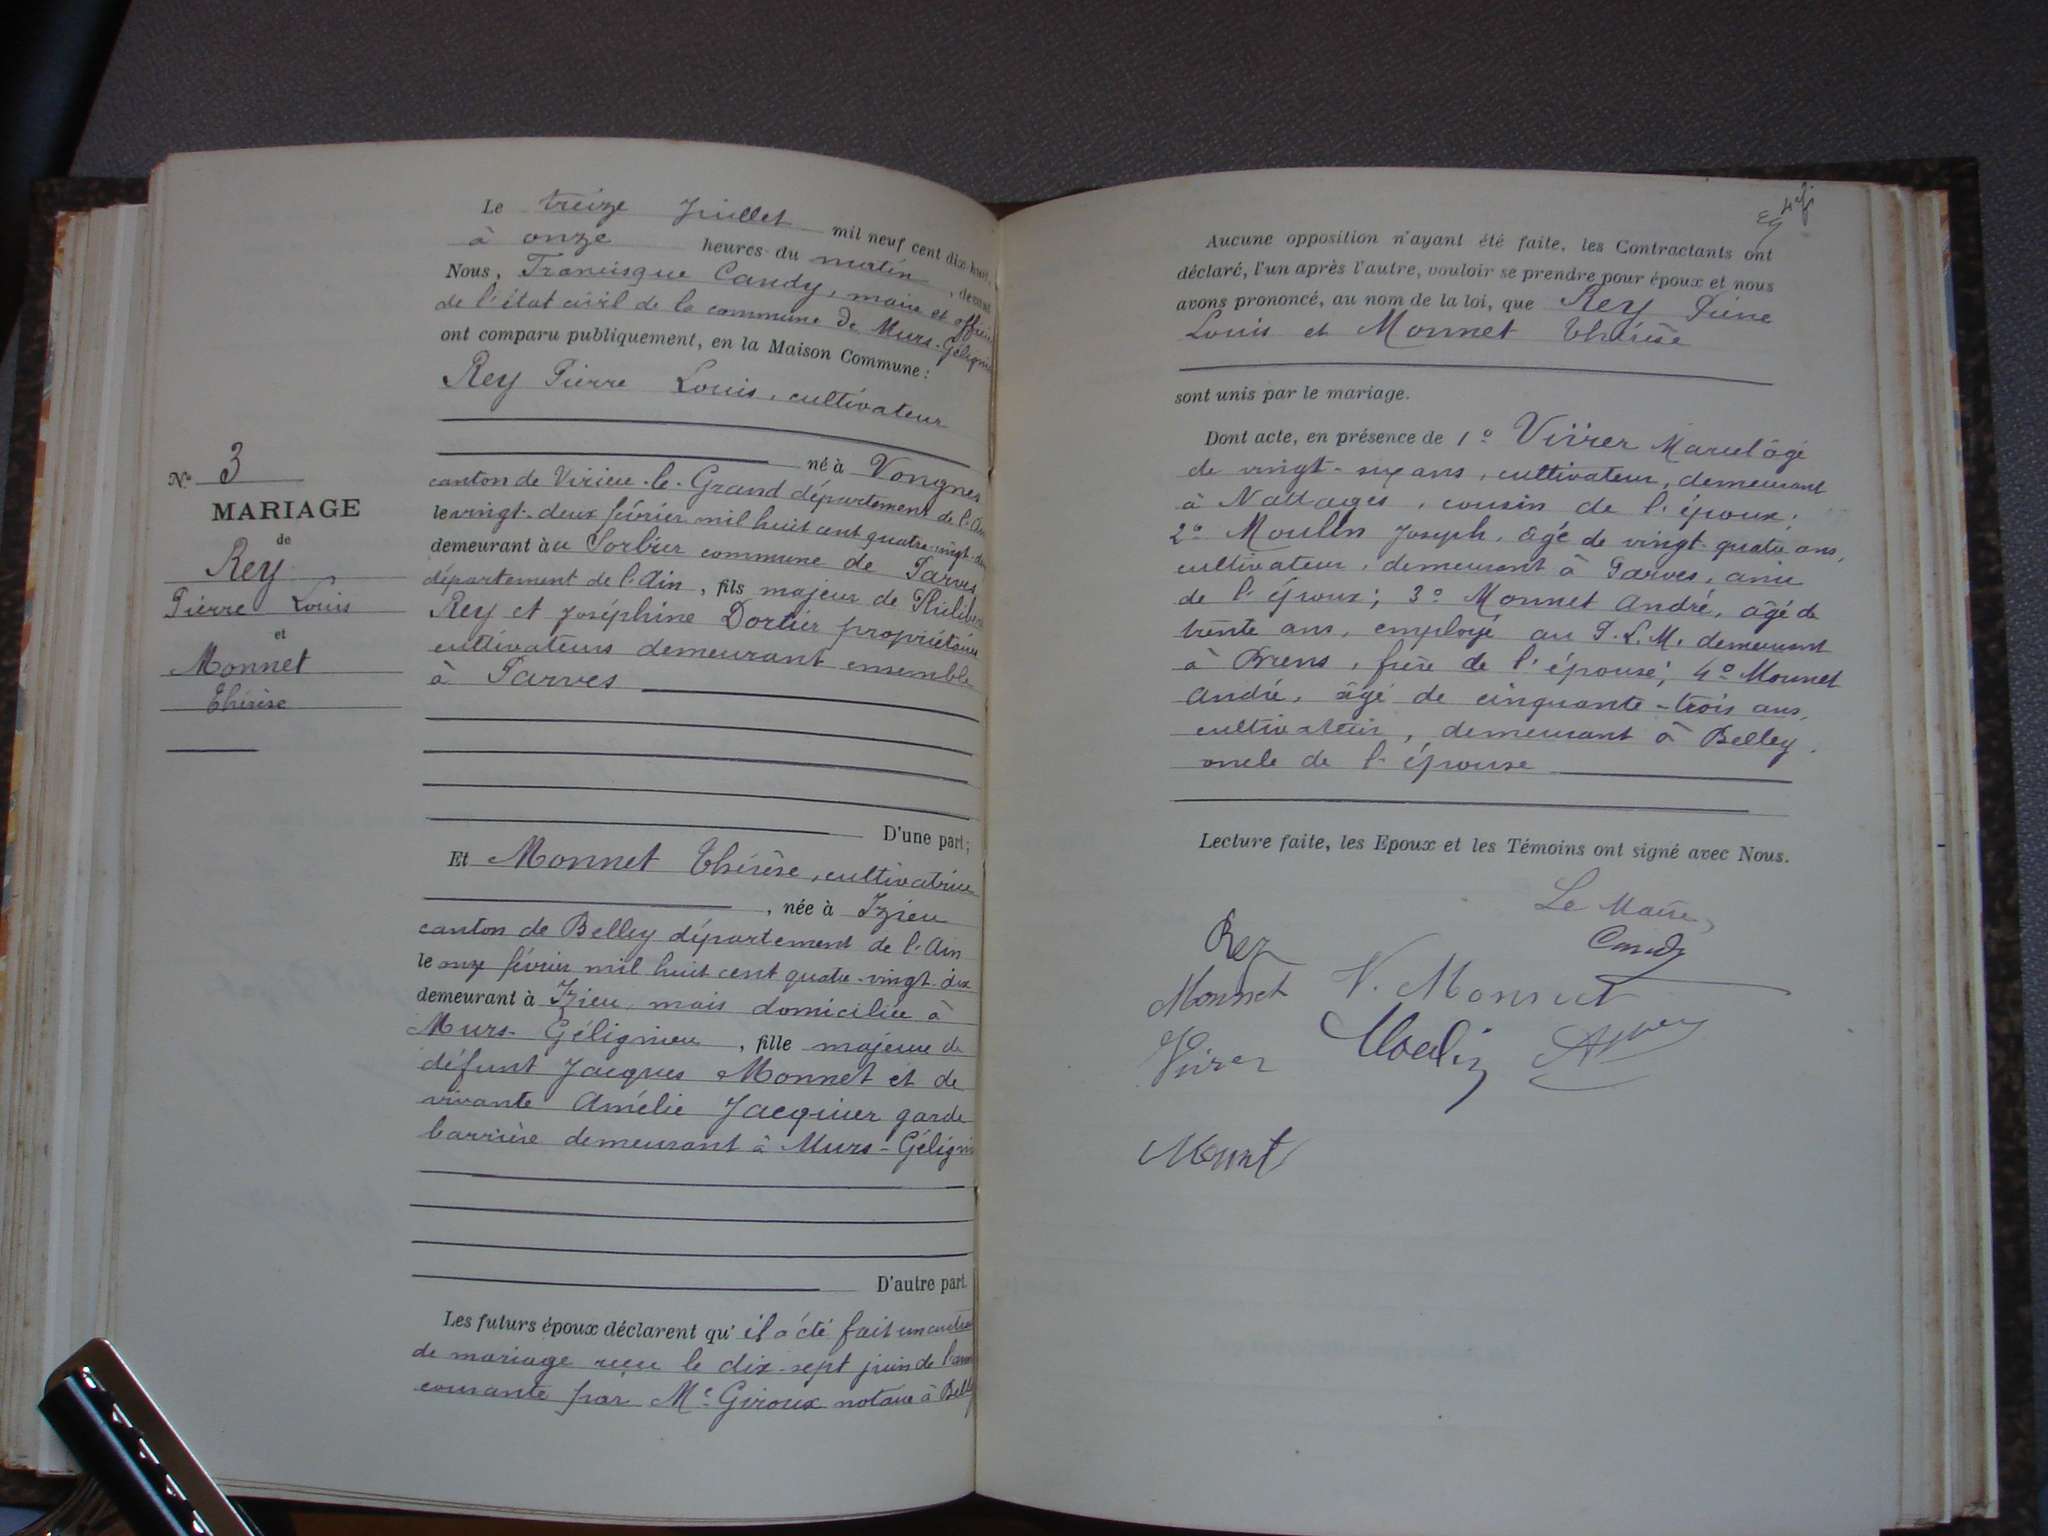 Le treize Juillet mil neuf cent dix-huit,
à onze heures du matin, devant
Nous, Francisque Candy, maire et officier
de l'état civil de la commune de Murs-Gélignieu
ont comparu publiquement, en la Maison Commune :
Rey Pierre Louis, cultivateur
né à Vongnes
canton de Virieu-le-Grand département de l'Ain
le vingt-deux février mil huit cent quatre-vingt-
demeurant à au Sorbier commune de Parves,
département de l'Ain, fils majeur de Philibert
Rey et Joséphine Dortier propriétaires
cultivateurs demeurant ensemble
à Parves
D'une part ;
Et Monnet Thérèse, cultivatrice
, née à Izieu
canton de Belley département de l'Ain
le février mil huit cent quatre-vingt-dix
demeurant à Izieu mais domiciliée à
Murs-Gélignieu, fille majeure de
défunt Jacques Monnet et de
vivante Amélie Jacquier garde
barrière demeurant à Murs-Géligni
D'autre part.
Les futurs époux déclarent qu'il a été fait un contrat
de mariage reçu le dix-sept juin de l'année
courante par Me Giroux notaire à Belley
No 3
MARIAGE
de
Rey
Pierre Louis
et
Monnet
Thérèse
Aucune opposition n'ayant été faite, les Contractants ont
déclaré, l'un après l'autre, vouloir se prendre pour époux et nous
avons prononcé, au nom de la loi, que Rey Pierre
Louis et Monnet Thérèse
sont unis par le mariage.
Dont acte, en présence de 1o Virer Marcel âgé
de vingt-six ans, cultivateur, demeurant
à Nattages, cousin de l'époux ;
2o Moulin Joseph, âgé de vingt-quatre ans,
cultivateur, demeurant à Parves, ami
de l'époux ; 3o Monnet André, âgé de
trente ans, employé au P.L.M. demeurant
à Brens, frère de l'épouse ; 4o Monnet
André, âgé de cinquante-trois ans,
cultivateur, demeurant à Belley,
oncle de l'épouse
Lecture faite, les Epoux et les Témoins ont signé avec Nous.
Le Maire,
Rey Candy
Monnet V. Monnet
Virer Moulin
Monnet